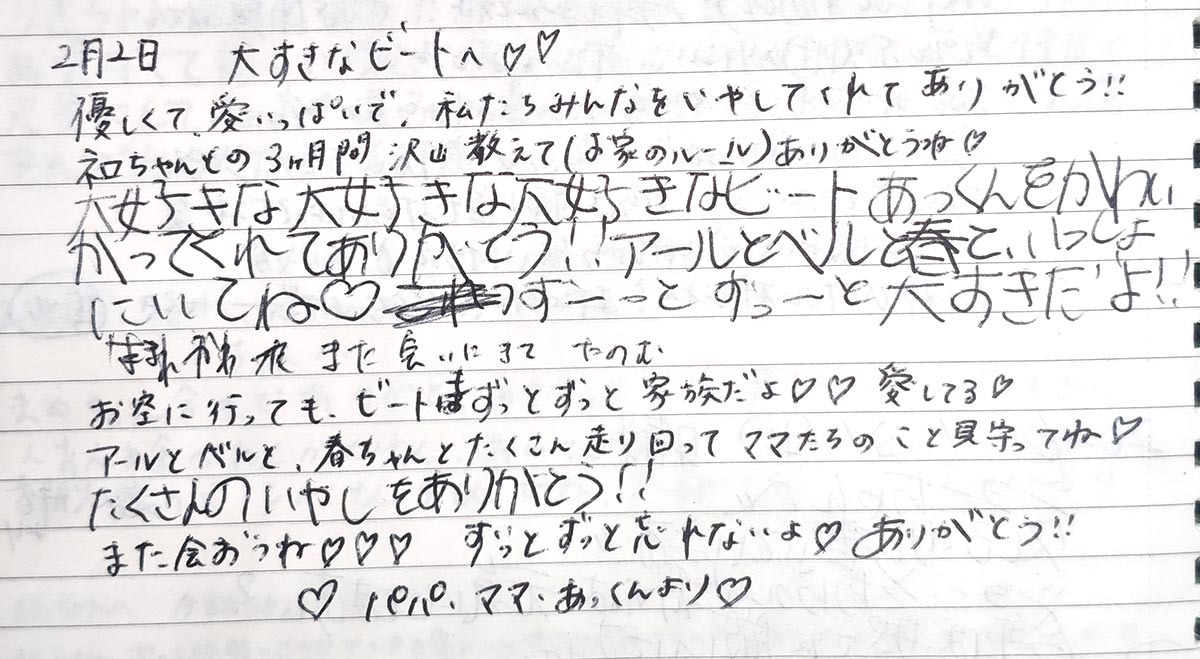 2月2日 大すきなビートへ♡♡
優しくて、愛いっぱいで、私たちみんなをいやしてくれて ありがとう!!
ネロちゃんもの 3ヶ月間 沢山 教えて(お家のルール)ありがとうね♡
大好きな大好きな大好きなビート あっくんをかわい
がってくれてありがとう!! アールとベルと春と、いっしょ
にいてね♡ ずーっと ずっーと 大すきだよ!!
また 会いにきて たのむ
お空に行っても、ビートはずっとずっと 家族だよ♡♡ 愛してる♡
アールとベルと、春ちゃんとたくさん走り回って ママたちのこと見守ってね♡
たくさんのいやしをありがとう!!
また会おうね♡♡♡ ずっとずっと忘れないよ♡ ありがとう!!
♡ パパ・ママ・あっくんより♡